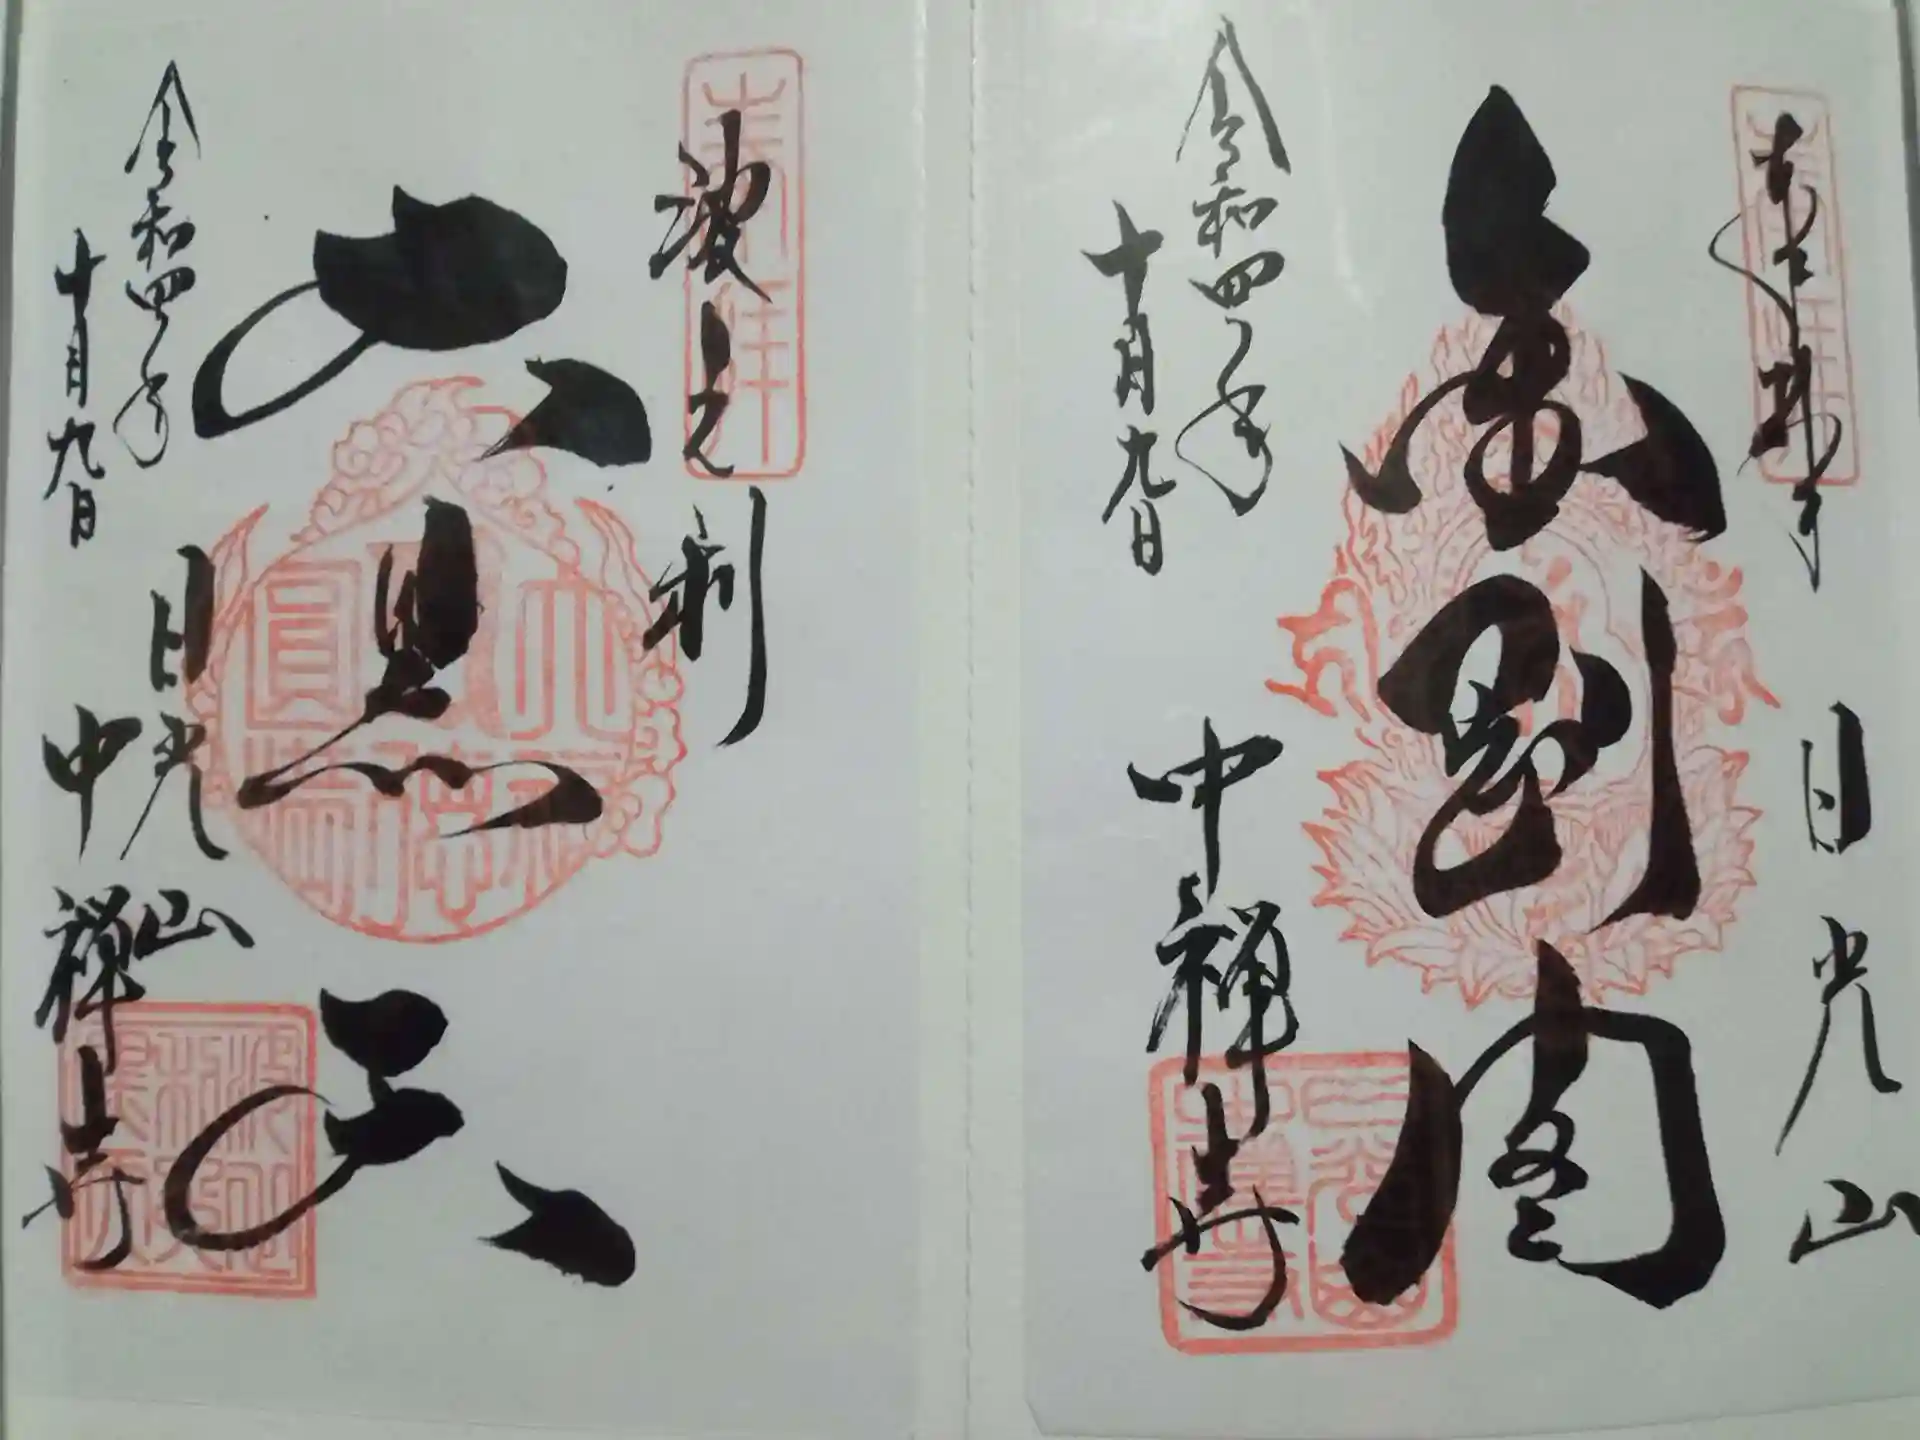 奉拝
日光山
金剛閣
令和四年
十月九日
中禅寺
波之利
大黒天
令和四年
十月九日
日光山
中禅寺